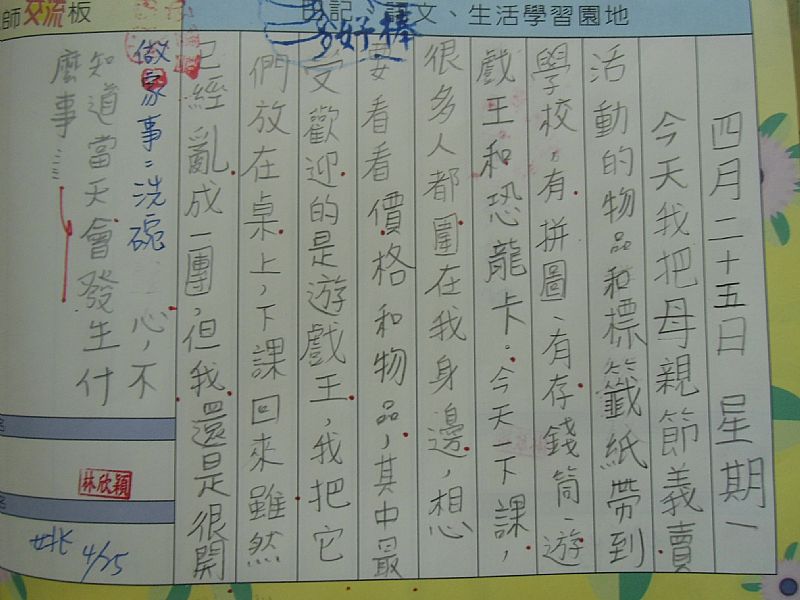 師交流板
記、語文、生活學習園地
好棒
四月二十五日 星期一
今天我把母親節義賣
活動的物品和標籤紙帶到
學校,有拼圖、有存錢筒、遊
戲王和恐龍卡。今天一下課,
很多人都圍在我身邊,想
要看看價格和物品,其中最
受歡迎的是遊戲王,我把它
們放在桌上,下課回來雖然
已經亂成一團,但我還是很開
心,不
知道當天會發生付
麼事……
做家事:洗碗
林欣穎
4/25